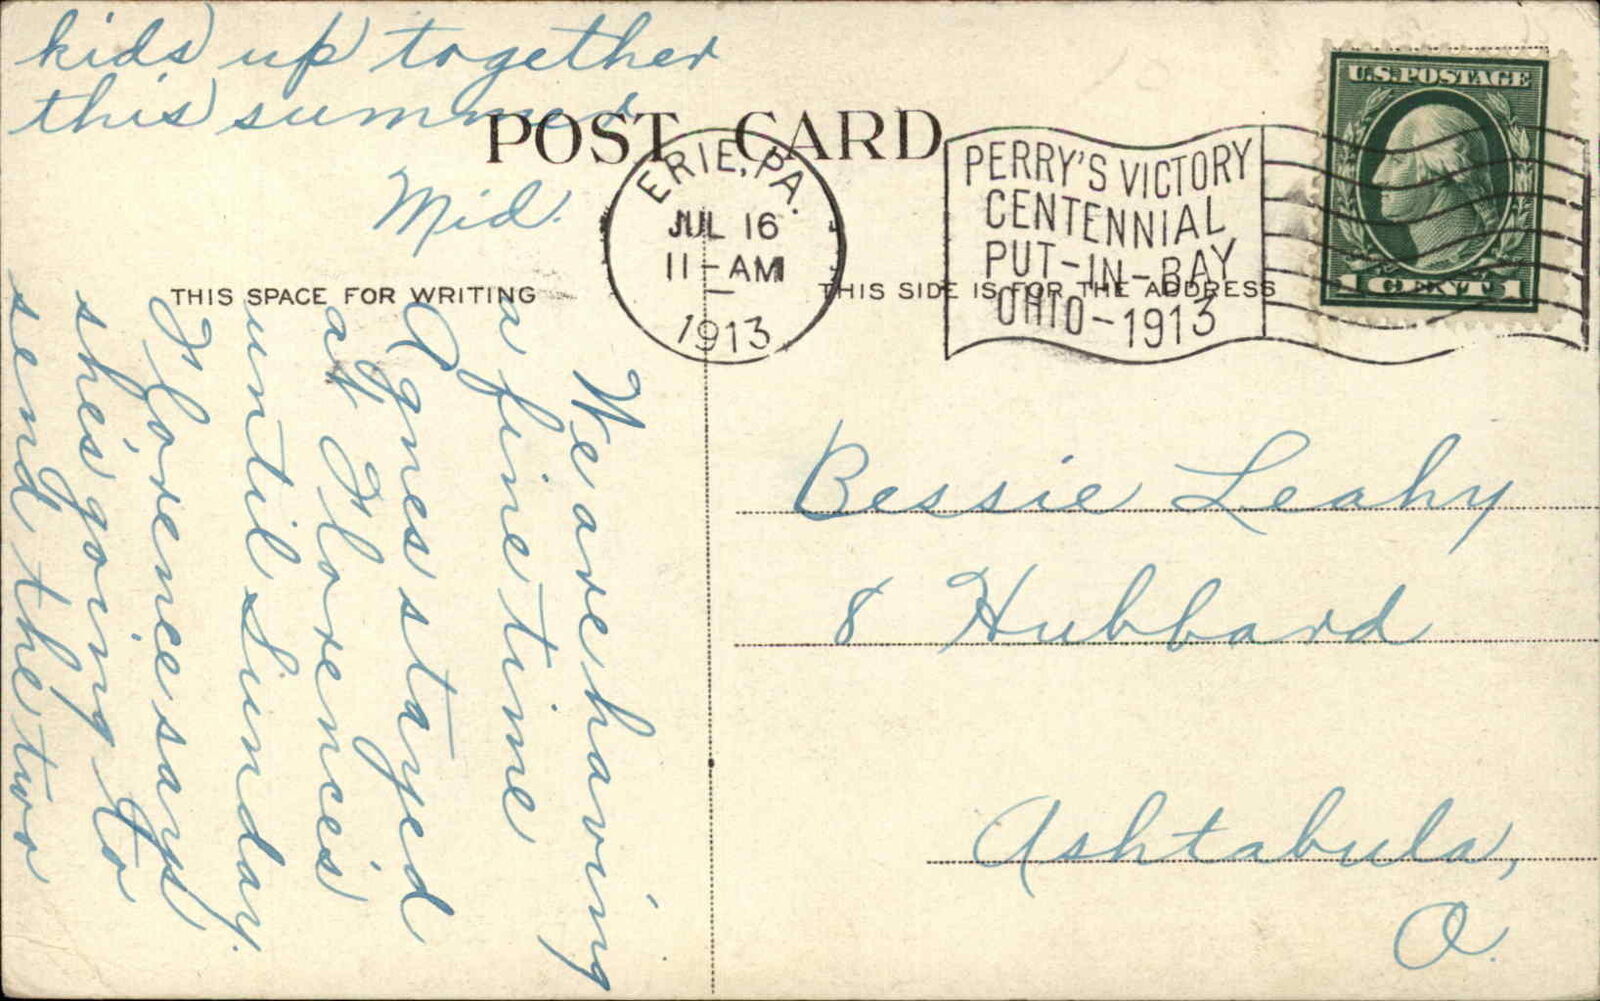 We are having
a fine time
Agnes stayed
at Florence's
until Sunday.
Florence says
she's going to
send the two
kids up together
this summer
Mid.
POST CARD
THIS SPACE FOR WRITING
THIS SIDE IS FOR THE ADDRESS
ERIE, PA.
JUL 16
11-AM
1913
PERRY'S VICTORY
CENTENNIAL
PUT-IN-BAY
OHIO-1913
U.S. POSTAGE
1 CENT 1
Bessie Leahy
8 Hubbard
Ashtabula,
O.